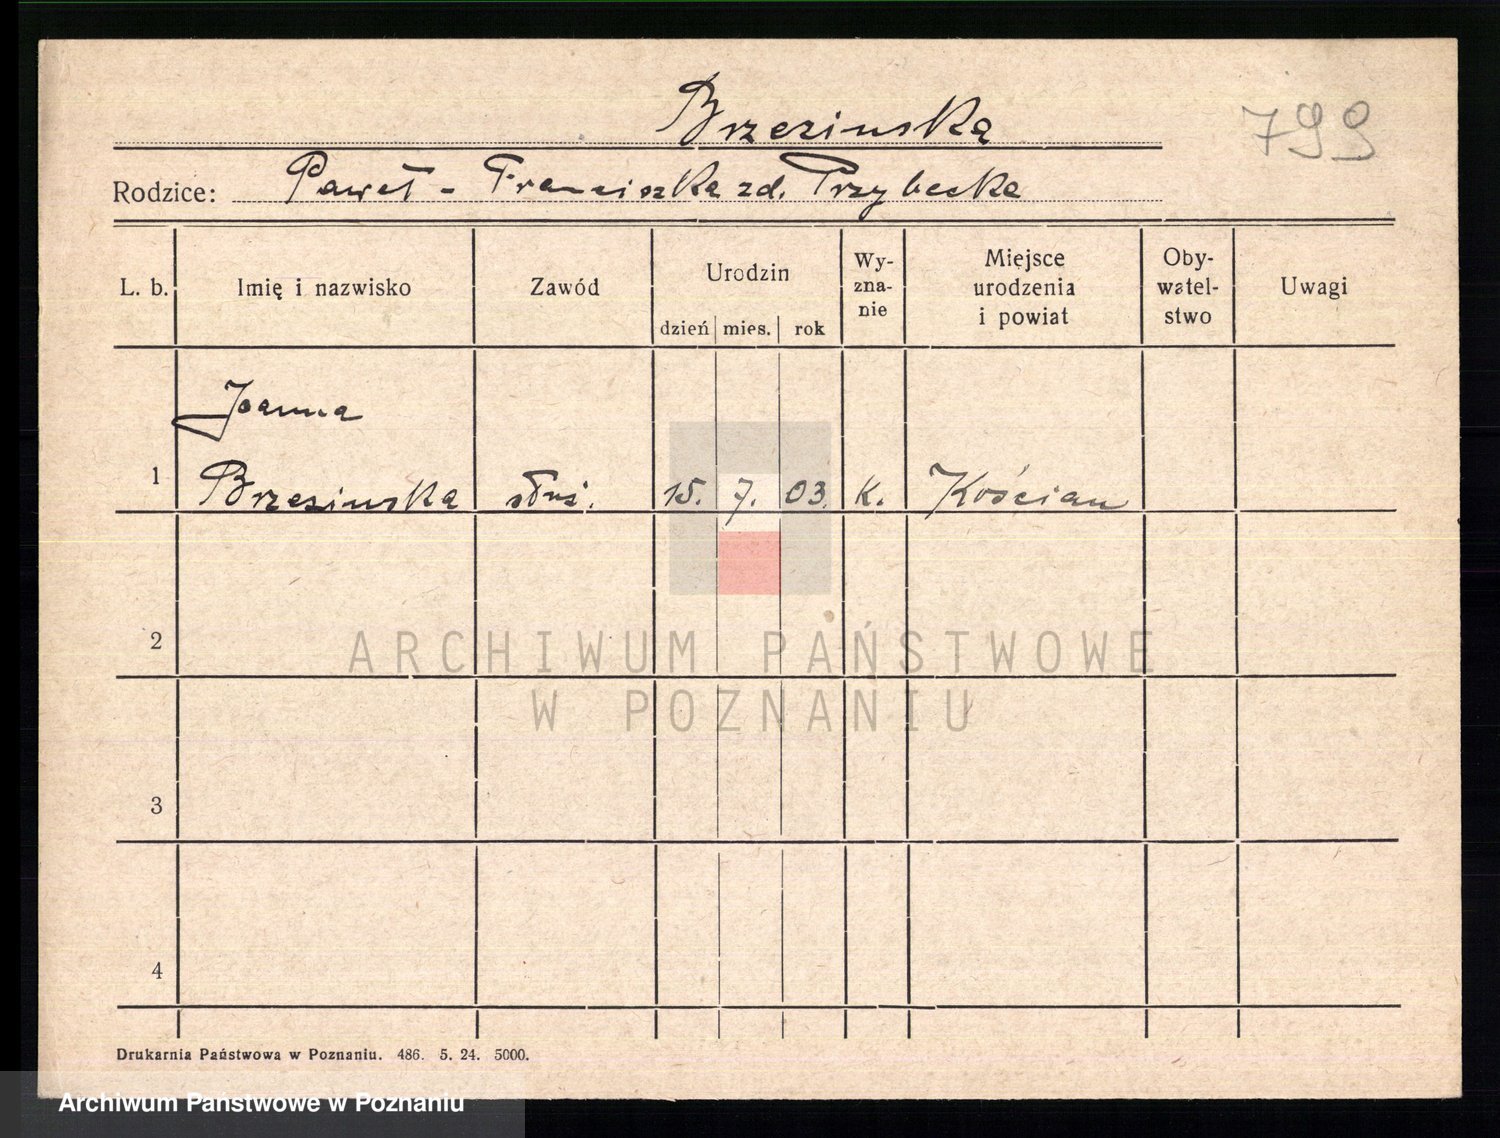 Brzezinska
799
Rodzice: Paweł - Franciszka zd. Przybecka
L. b.
Imię i nazwisko
Zawód
Urodzin
dzień mies. rok
Wy-
zna-
nie
Miejsce
urodzenia
i powiat
Oby-
watel-
stwo
Uwagi
Joanna
1 Brzezinska służ. 15. 7. 03. k. Kościan
2
3
4
ARCHIWUM PAŃSTWOWE
W POZNANIU
Drukarnia Państwowa w Poznaniu. 486. 5. 24. 5000.
Archiwum Państwowe w Poznaniu